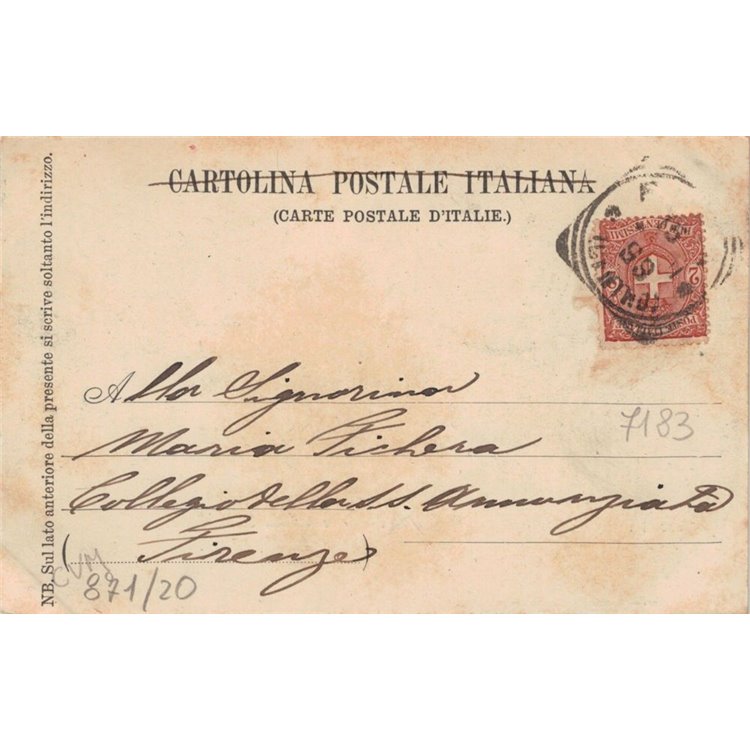 CARTOLINA POSTALE ITALIANA
(CARTE POSTALE D'ITALIE.)
NB. Sul lato anteriore della presente si scrive soltanto l'indirizzo.
2
Alla Signorina
Maria Fichera
Collegio della SS. Annunziata
(Firenze)
7183
871/20